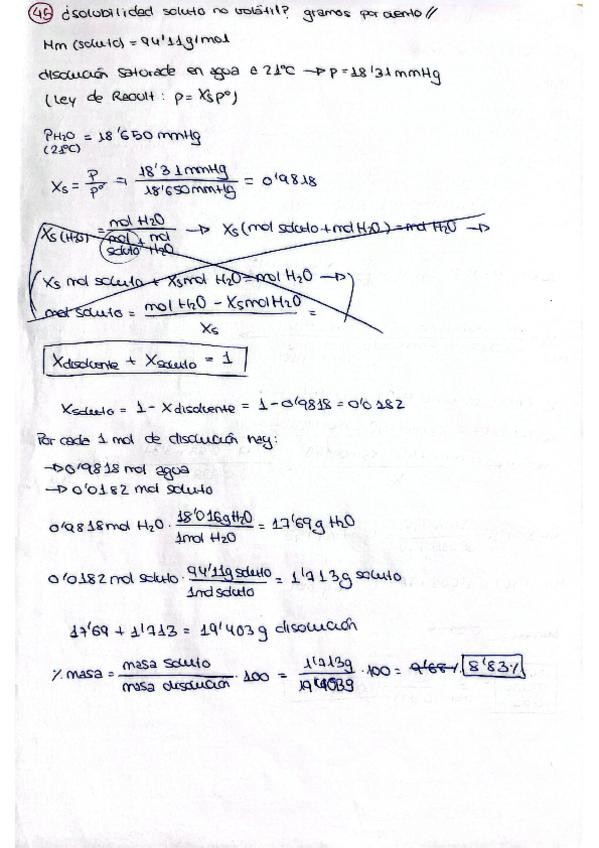 45 ¿solubilidad soluto no volátil? gramos por ciento //
Mm (soluto) = 94'11 g/mol
disolución saturada en agua a 21ºC → p = 18'31 mmHg
(Ley de Raoult: p = Xs pº)
PH2O = 18'650 mmHg
(21ºC)
Xs = p/pº = 18'31 mmHg / 18'650 mmHg = 0'9818
Xs (H2O) = mol H2O / mol soluto + mol H2O → Xs (mol soluto + mol H2O) = mol H2O →
(Xs mol soluto + Xs mol H2O = mol H2O →)
mol soluto = mol H2O - Xs mol H2O / Xs =
Xdisolvente + Xsoluto = 1
Xsoluto = 1 - Xdisolvente = 1 - 0'9818 = 0'0182
Por cada 1 mol de disolución hay:
→ 0'9818 mol agua
→ 0'0182 mol soluto
0'9818 mol H2O · 18'016 g H2O / 1 mol H2O = 17'69 g H2O
0'0182 mol soluto · 94'11 g soluto / 1 mol soluto = 1'713 g soluto
17'69 + 1'713 = 19'403 g disolución
% masa = masa soluto / masa disolución · 100 = 1'713g / 19'403g · 100 = 9'68% 8'83%